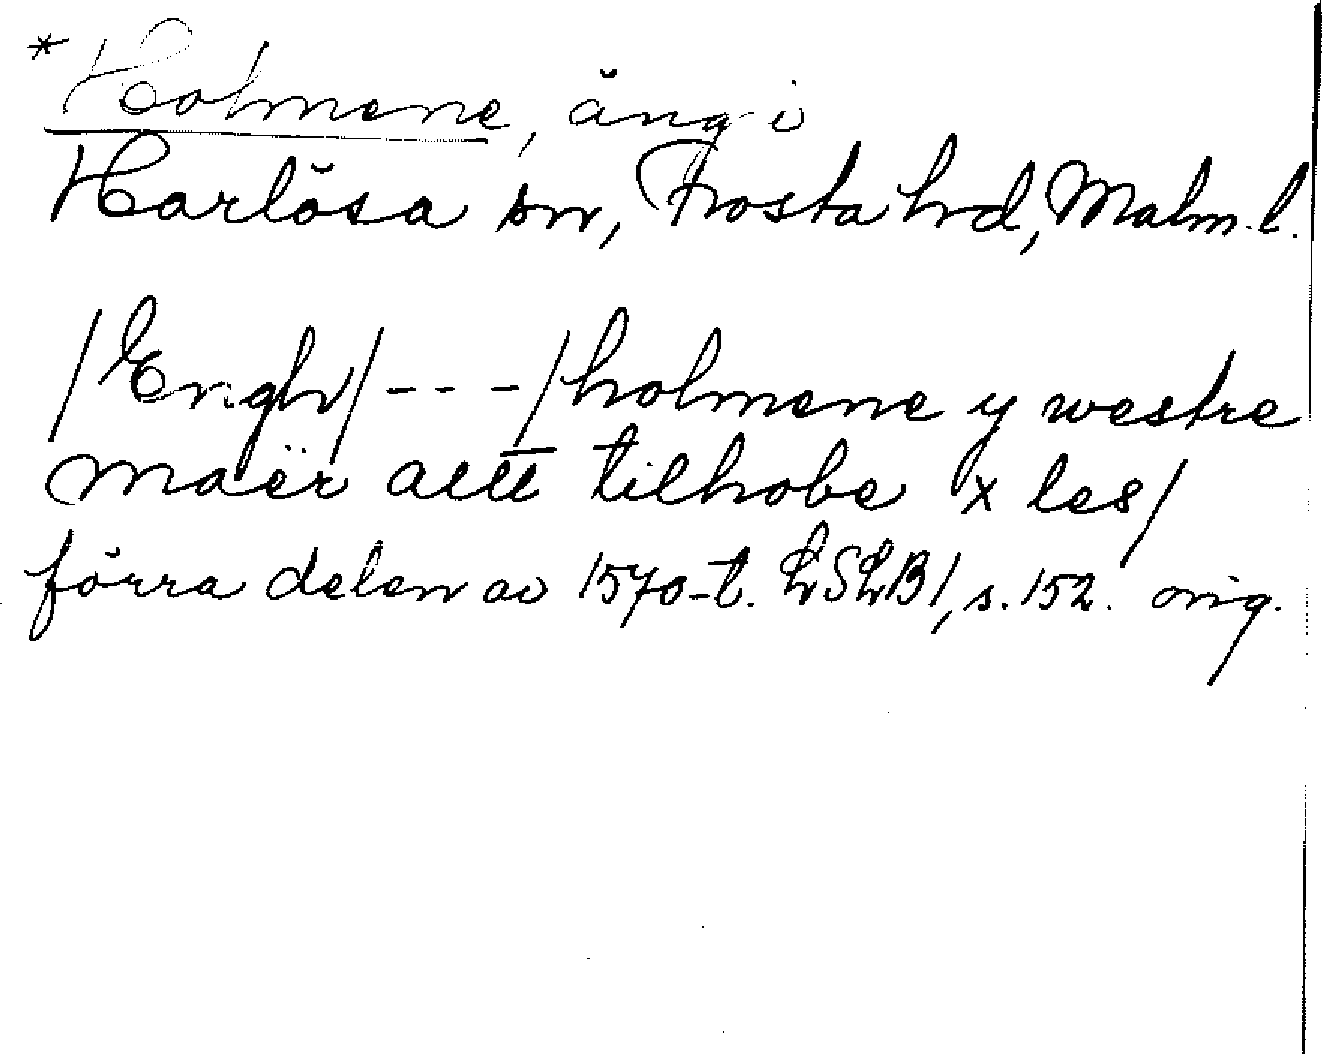 *Holmene, äng i
Harlösa sn, Frosta hrd, Malm.l.
/Engh/---/holmene y westre
maër altt tilhobe x les/
förra delen av 1570-t. LSLB1, s. 152. orig.